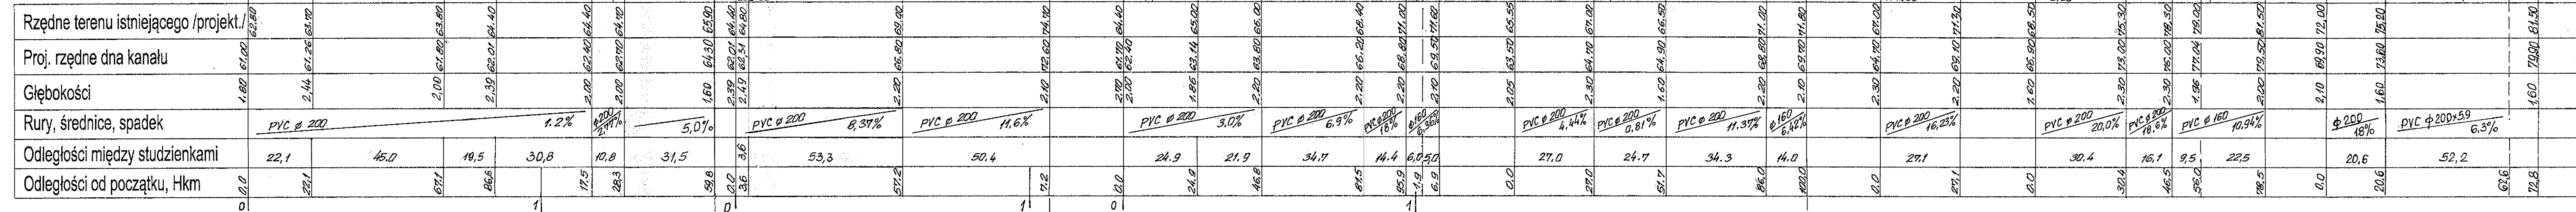 Rzędne terenu istniejącego /projekt./ 62.80 63.70 63.80 64.40 64.40 64.70 65.90 64.40 64.80 69.00 74.70 64.40 65.00 66.00 68.40 71.00 71.60 65.55 67.00 66.50 71.00 71.80 67.00 71.30 68.50 75.30 78.30 79.00 81.50 72.00 75.20 81.50
Proj. rzędne dna kanału 61.00 61.26 61.80 62.01 62.40 62.70 64.30 62.01 62.31 66.80 72.60 61.70 62.40 63.14 63.80 66.20 68.80 69.50 63.50 64.70 64.90 68.80 69.70 64.70 69.10 66.90 73.00 76.00 77.04 79.50 69.90 73.60 79.90
Głębokości 1.80 2,44 2,00 2.39 2.00 2.00 1,60 2.39 2.49 2.20 2.10 2.70 2.00 1.86 2.20 2.20 2.20 2.10 2.05 2.30 1.60 2.20 2.10 2.30 2.20 1.60 2.30 2.30 1.96 2.00 2,10 1,60 1,60
Rury, średnice, spadek PVC ø 200 1.2% ø200 2,77% 5,0% PVC ø 200 8,37% PVC ø 200 11,6% PVC ø 200 3,0% PVC ø 200 6.9% PVC ø200 18% ø160 6,36% PVC ø 200 4,44% PVC ø 200 0.81% PVC ø 200 11.37% ø160 6,42% PVC ø 200 16,23% PVC ø 200 20,0% PVC ø 200 18.6% PVC ø 160 10,94% ø 200 18% PVC ø200x5.9 6.3%
Odległości między studzienkami 22,1 45.0 19,5 30,8 10,8 31,5 3,6 53,3 50.4 24.9 21.9 34.7 14.4 6,0 5,0 27.0 24.7 34.3 14.0 27.1 30.4 16,1 9,5 22,5 20,6 52,2
Odległości od początku, Hkm 0.0 22,1 67,1 86,6 17.5 28,3 59,8 0.0 3,6 57,2 7.2 0.0 24.9 46.8 81.5 95,9 1.9 6.9 0.0 27.0 51.7 86.0 100,0 0.0 27,1 0.0 30.4 46.5 56.0 78.5 0.0 20,6 62,6 72.8
0 1 0 1 0 1